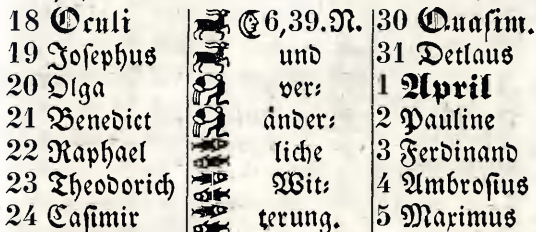 18 Oculi 6,39.N. 30 Quasim.
19 Josephus und 31 Detlaus
20 Olga ver: 1 April
21 Benedict änder: 2 Pauline
22 Raphael liche 3 Ferdinand
23 Theodorich Wit: 4 Ambrosius
24 Casimir terung. 5 Maximus